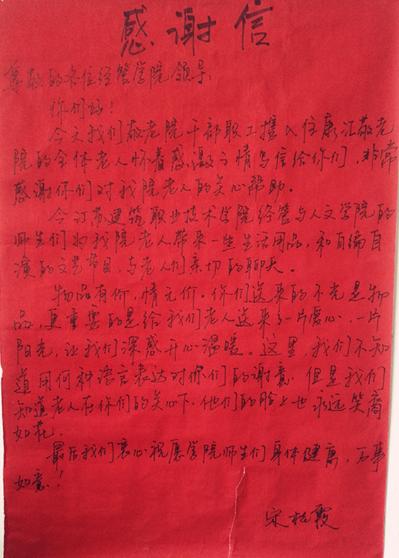 感谢信
尊敬的各位经管学院领导:
你们好!
今天我们敬老院干部职工携入住康汇敬老
院的全体老人怀着感激之情写信给你们,非常
感谢你们对我院老人的关心帮助。
今江苏建筑职业技术学院经管与人文学院的
师生们为我院老人带来一些生活用品,和自编自
演的文艺节目,与老人们亲切的聊天。
物品有价,情无价。你们送来的不光是物
品,更重要的是给我们老人送来了一片爱心,一片
阳光,让我们深感开心温暖。这里,我们不知
道用何种语言表达对你们的谢意,但是我们
知道老人在你们的关心下,他们的脸上也永远笑离
如花。
最后我们衷心祝愿学院师生们身体健康,万事
如意!
宋桂霞